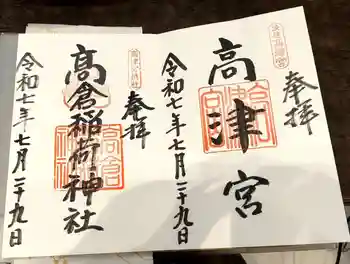 奉拝
高津宮
令和七年七月二十九日
奉拝
高倉稲荷神社
令和七年七月二十九日